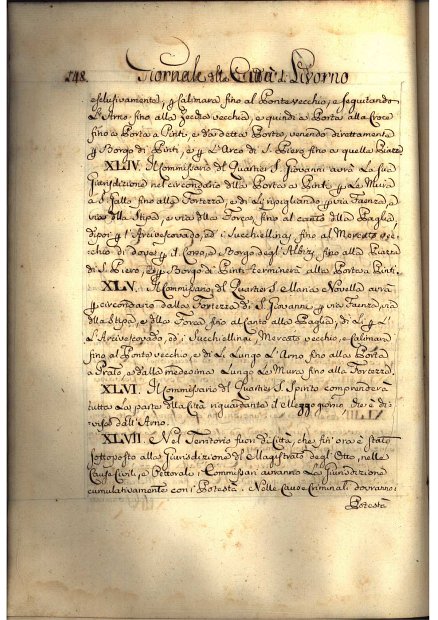 548. Giornale della Città di Livorno
esclusivamente, p Calimara fino al Ponte vecchio, e seguitando
l'Arno fino alla Zecca vecchia, e quindi a Porta alla Croce
fino a Porta a Pinti, e da detta Porta, venendo direttamente
p Borgo di Pinti, e p l'Arco di S. Piero fino a quella Piazza
XLIV. Il Commissario del Quartier S. Giovanni avrà la sua
Giurisdizione nel circondario della Porta a Pinti p le Mura
a S. Gallo fino alla Fortezza, e di lì ripigliando p via Faenza, a
via della Stipa, e via della Forca, fino al canto alla Paglia,
di poi p l'Arcivescovado, ed i Succhiellinai, fino al Mercato vec=
chio di dove p il Corso, e Borgo degl'Albizi fino alla Piazza
di S. Piero, e p Borgo di Pinti terminerà alla Porta a Pinti.
XLV. Il Commissario del Quartier S. Maria Novella avrà
p circondario dalla Fortezza di S. Giovanni, p via Faenza, via
della Stipa, e della Forca, fino al Canto alla Paglia, di lì p l'
Arcivescovado, ed i Succhiellinai Mercato vecchio, e Calimara
fino al Ponte vecchio, e di lì lungo l'Arno fino alla Porta
a Prato, e dalla medesima lungo le Mura fino alla Fortezza.
XLVI. Il Commissario del Quartier S. Spirito comprenderà
tutta la parte della Città riguardante il Mezzogiorno che è di=
visa dall'Arno.
XLVII. Nel Territorio fuori di Città, che fin'ora è stato
sottoposto alla Giurisdizione del Magistrato degl'Otto, nelle
Cause Civili, e Pretorali i Commissari avranno la Giurisdizione
cumulativamente con i Potestà. Nelle Cause Criminali dovranno i
Potestà